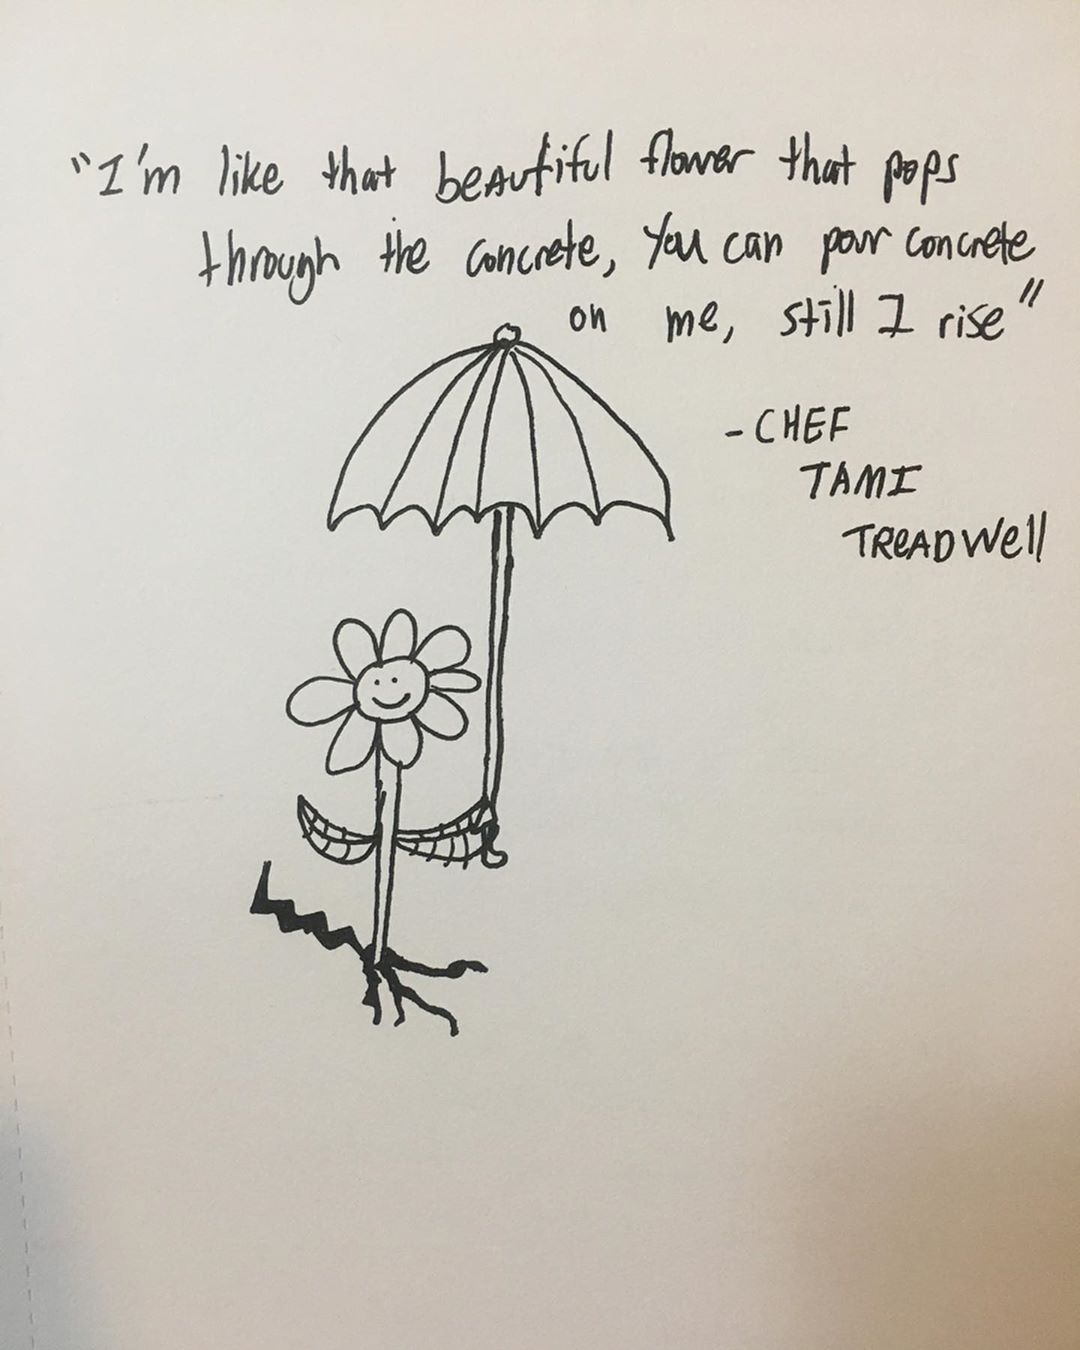 "I'm like that beautiful flower that pops
through the concrete, You can pour concrete
on me, still I rise"
-CHEF
TAMI
TREADWell